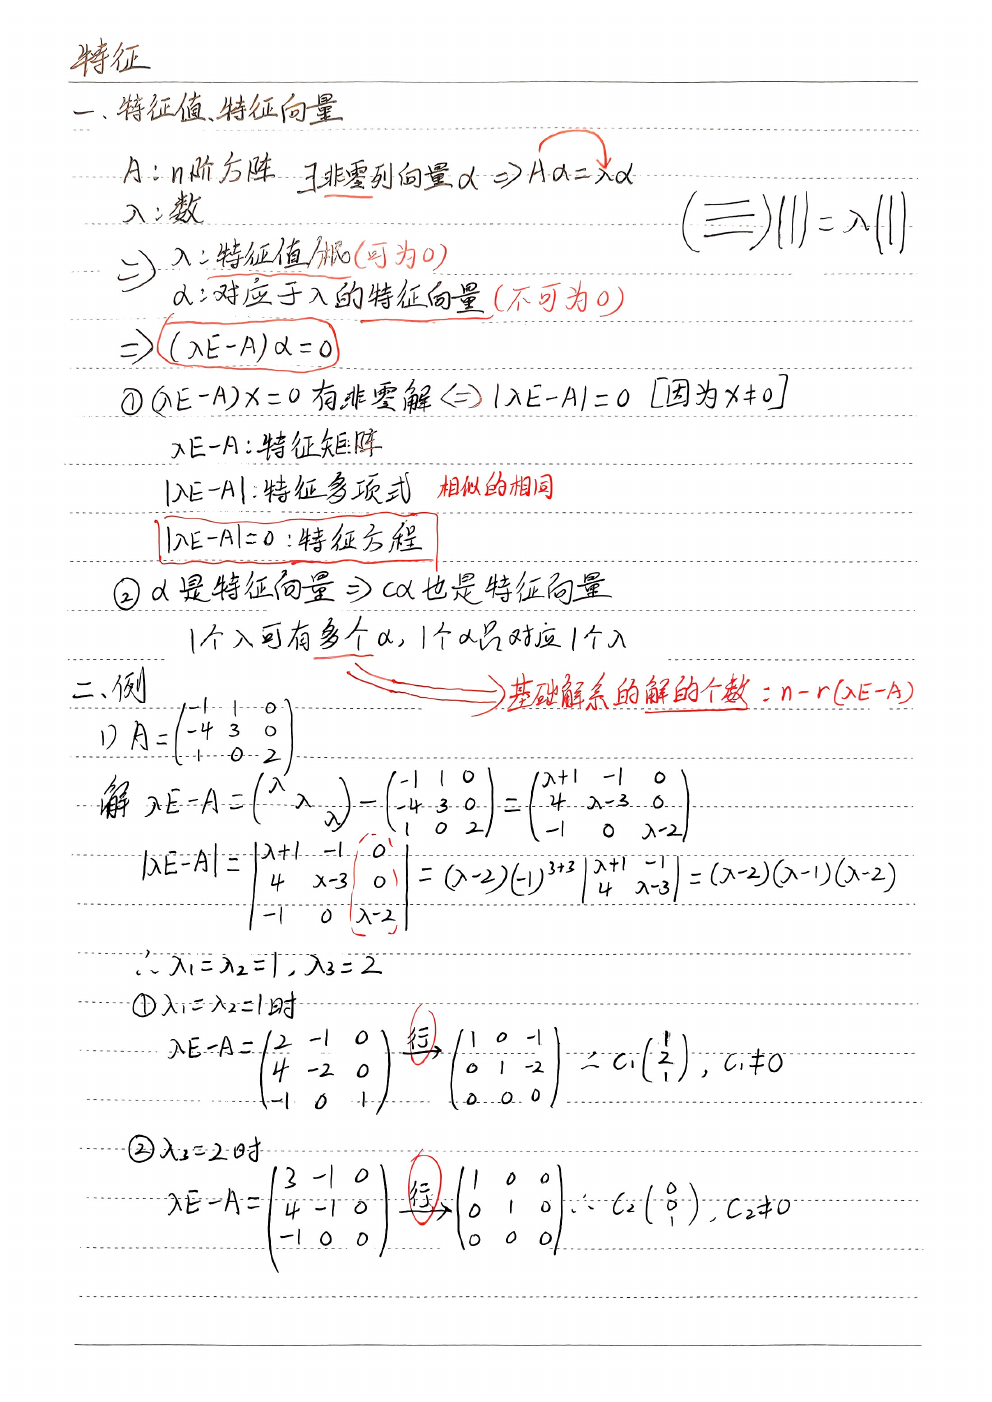 特征
一、特征值、特征向量
A:n阶方阵 ∃非零列向量α ⇒ Aα=λα
λ:数
(三)(||)=λ(||)
⇒ λ:特征值/根(可为0)
α:对应于λ的特征向量(不可为0)
⇒ (λE-A)α=0
① (λE-A)X=0 有非零解 ⇔ |λE-A|=0 [因为X≠0]
λE-A:特征矩阵
|λE-A|:特征多项式 相似的相同
|λE-A|=0:特征方程
② α是特征向量 ⇒ cα也是特征向量
1个λ可有多个α,1个α只对应1个λ
基础解系的解的个数:n-r(λE-A)
二、例
1) A=(-1 1 0
-4 3 0
1 0 2)
解 λE-A=(λ λ λ)-(-1 1 0
-4 3 0
1 0 2)=(λ+1 -1 0
4 λ-3 0
-1 0 λ-2)
|λE-A|=|λ+1 -1 0
4 λ-3 0
-1 0 λ-2|=(λ-2)(-1)³⁺³|λ+1 -1
4 λ-3|=(λ-2)(λ-1)(λ-2)
∴λ₁=λ₂=1,λ₃=2
① λ₁=λ₂=1时
λE-A=(2 -1 0
4 -2 0
-1 0 1) 行→ (1 0 -1
0 1 -2
0 0 0) ∴ C₁(1
2
1),C₁≠0
② λ₃=2时
λE-A=(3 -1 0
4 -1 0
-1 0 0) 行→ (1 0 0
0 1 0
0 0 0) ∴ C₂(0
0
1),C₂≠0